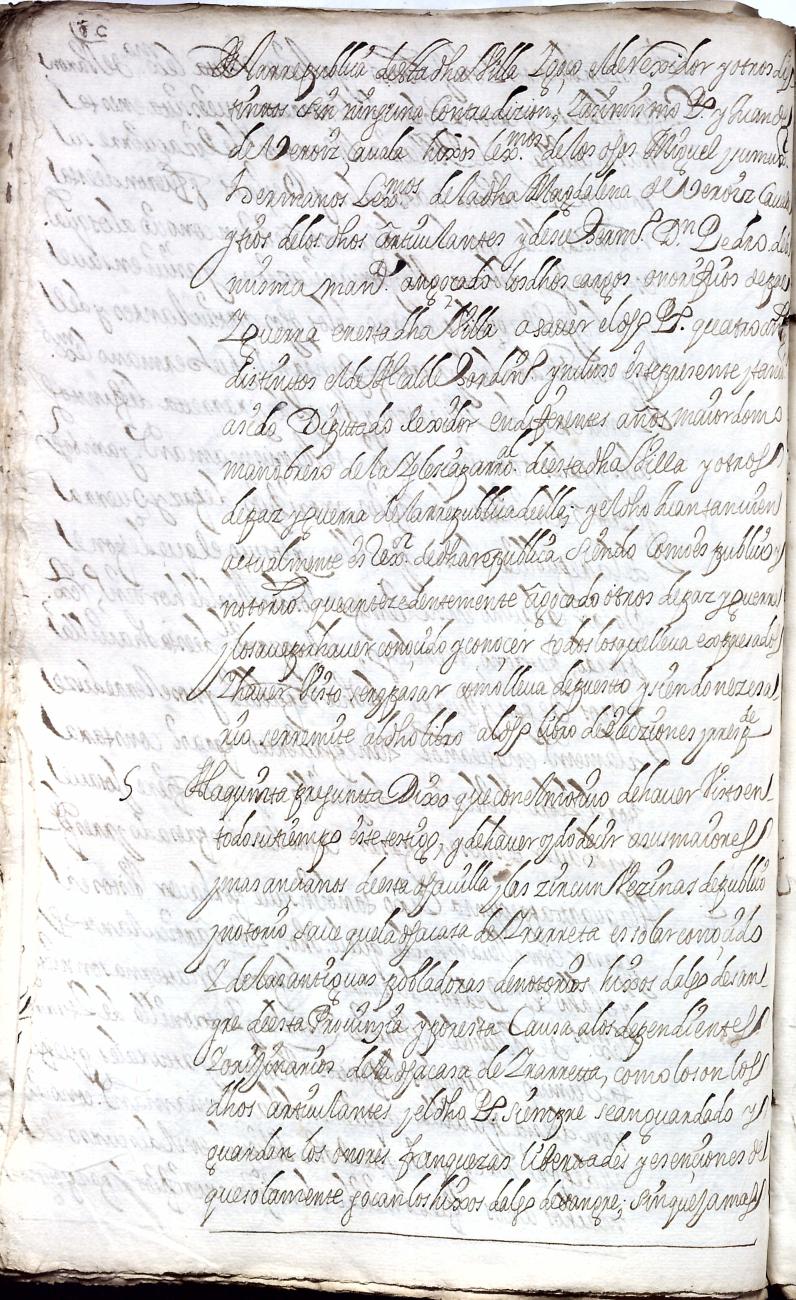 de la rrepublica de esta dha Villa Y goço el de Rexidor y otros dis
tintos sin ninguna contradizion, Y asimismo P.º y Juan de
de Veroiz Çauala hixos lex.mos de los dhos Miguel y
hermanos Lex.mos de la dha Magdalena de Veroiz Çaua
y tios de los dhos articulantes y de su herm.º D.n Pedro de la
misma man.ª an goçado los dhos cargos onorificos de paz
Y guerra en esta dha Villa a sauer el dho P.º quatro años
distintos el de Alcalde hordin.º yncluso este presente y tam
a sido Diputado Rexidor en diferentes años maiordomo
manobrero de la Yglesia parro.al de esta dha Villa y otros
de paz y guerra de la rrepublica de ella, y el dho Juan tanuien
actualmente es Rex.or de dha republica, siendo como es publico y
notorio que antezedentemente a goçado otros de paz y guerra
y lo saue por hauer conoçido y conocer todos los que lleua expresados
Y hauer Visto rengpasar como lleua depuesto y siendo nezesa
rio se rremite al dho libro al dho libro de eleziones y rresp.de
5 A la quinta pregunta Dixo que con el motiuo de hauer Visto en
todo su tiempo este testigo, y de hauer oydo decir a sus maiores
y mas ancianos de esta dha villa y las zircun Vezinas de publico
y notorio saue que la dha casa de Yrarreta es solar conoçido
Y de las antiguas pobladoras de notorios hixos dalgo de san
gre de esta Prouinzia y por esta Causa a los dependientes
Y orijinarios de la dha casa de Yrarretta, como lo son los
dhos articulantes y el dho P.º siempre se an guardado y
guardan los onores franquezas libertades y esenciones de
que solamente goçan los hixos dalgo de sangre; sin que jamas